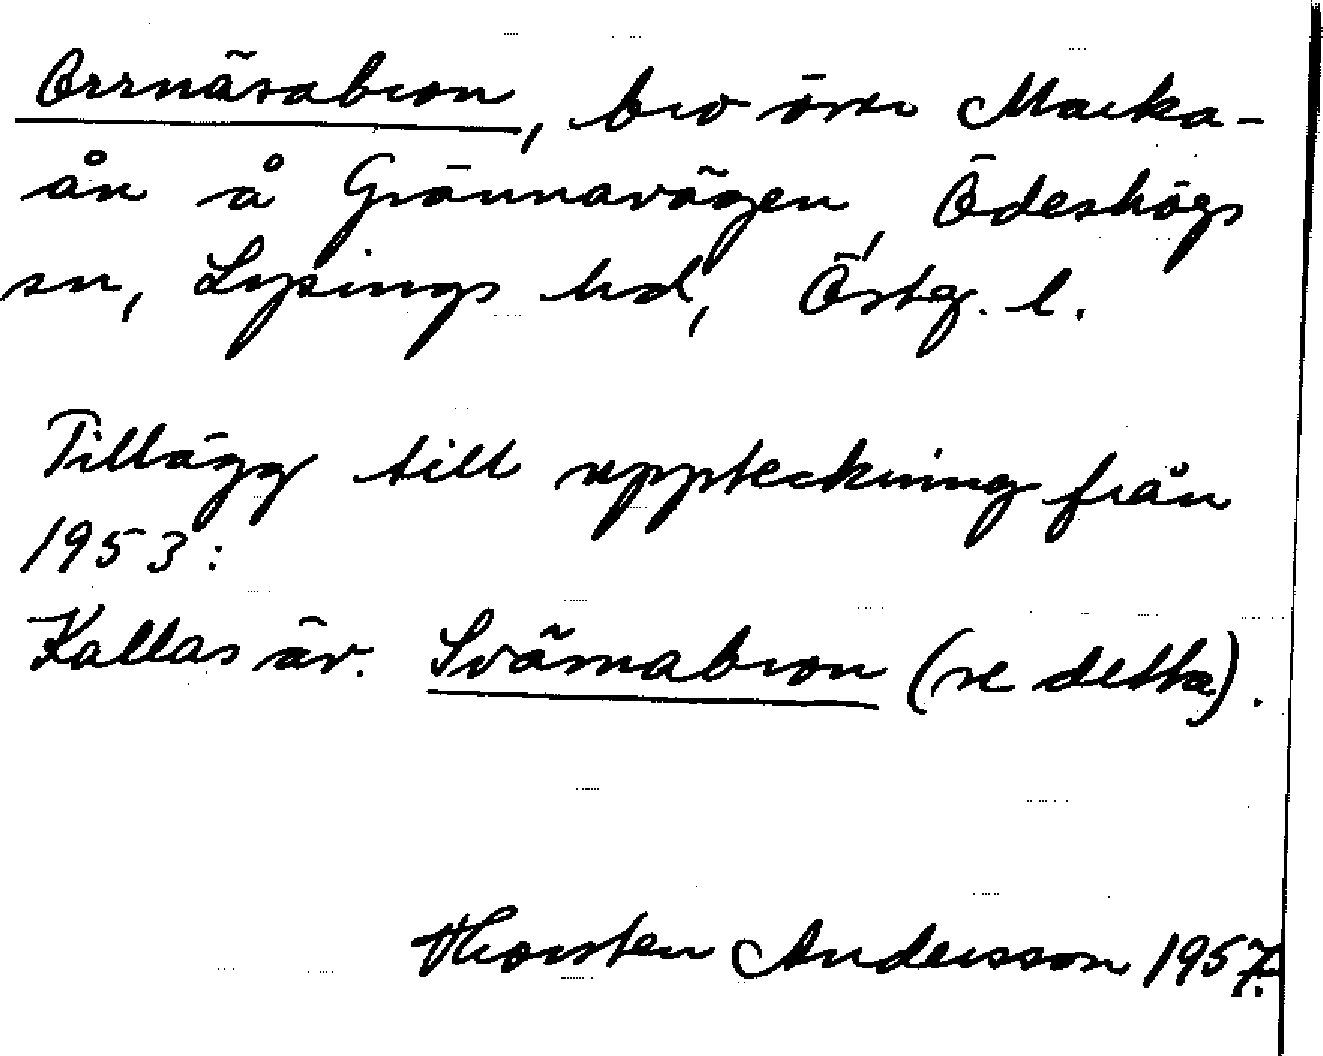 Orrnäsabron, bro över Marka-
ån å Grännavägen, Ödeshögs
sn, Lysings hd, Östg. l.
Tillägg till uppteckning från
1953:
Kallas äv. Svämabron (se detta).
Thorsten Andersson 1957.